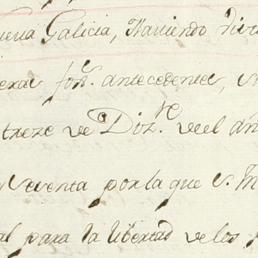 ueva Galicia, Haviendo
for. antecedentes,
treze de Diz.re del añ
cuenta por la que S. M
al para la libertad de los